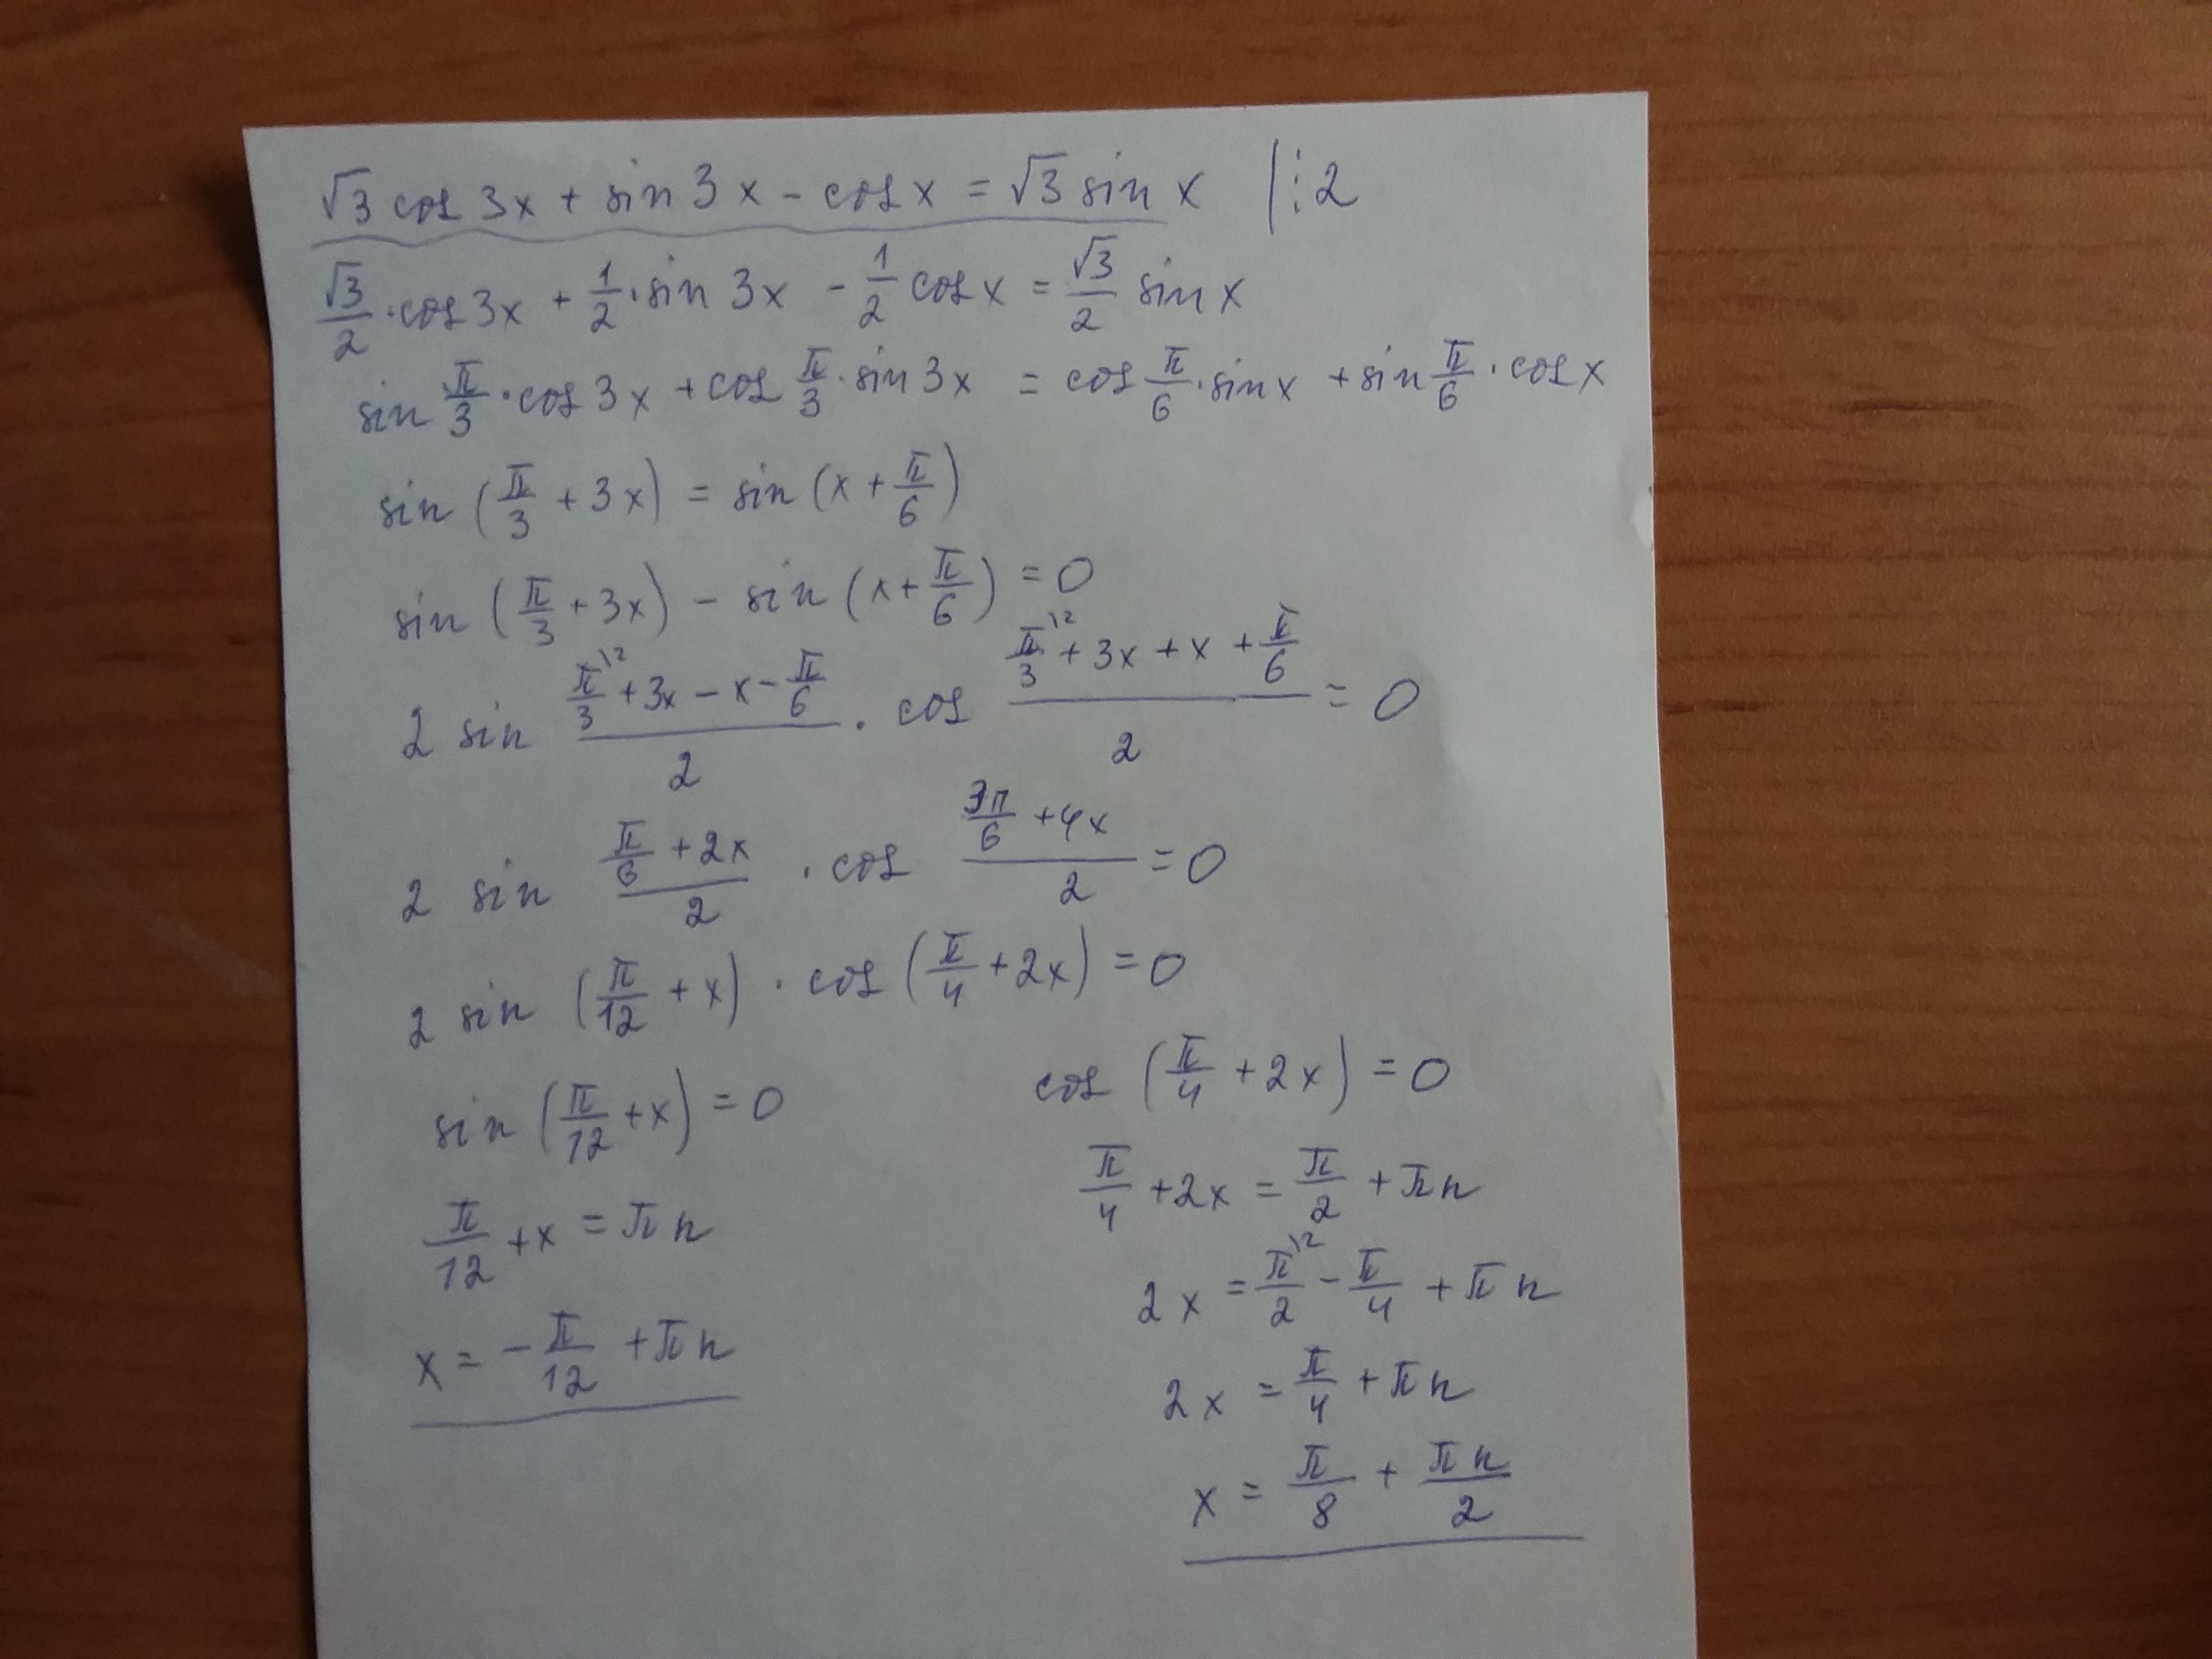 √3 cos 3x + sin 3x - cos x = √3 sin x |:2
√3/2 · cos 3x + 1/2 · sin 3x - 1/2 cos x = √3/2 sin x
sin π/3 · cos 3x + cos π/3 · sin 3x = cos π/6 · sin x + sin π/6 · cos x
sin (π/3 + 3x) = sin (x + π/6)
sin (π/3 + 3x) - sin (x + π/6) = 0
2 sin (π/3\2 + 3x - x - π/6)/2 · cos (π/3\2 + 3x + x + π/6)/2 = 0
2 sin (π/6 + 2x)/2 · cos (3π/6 + 4x)/2 = 0
2 sin (π/12 + x) · cos (π/4 + 2x) = 0
sin (π/12 + x) = 0
π/12 + x = πn
x = - π/12 + πn
cos (π/4 + 2x) = 0
π/4 + 2x = π/2 + πn
2x = π/2\2 - π/4 + πn
2x = π/4 + πn
x = π/8 + πn/2